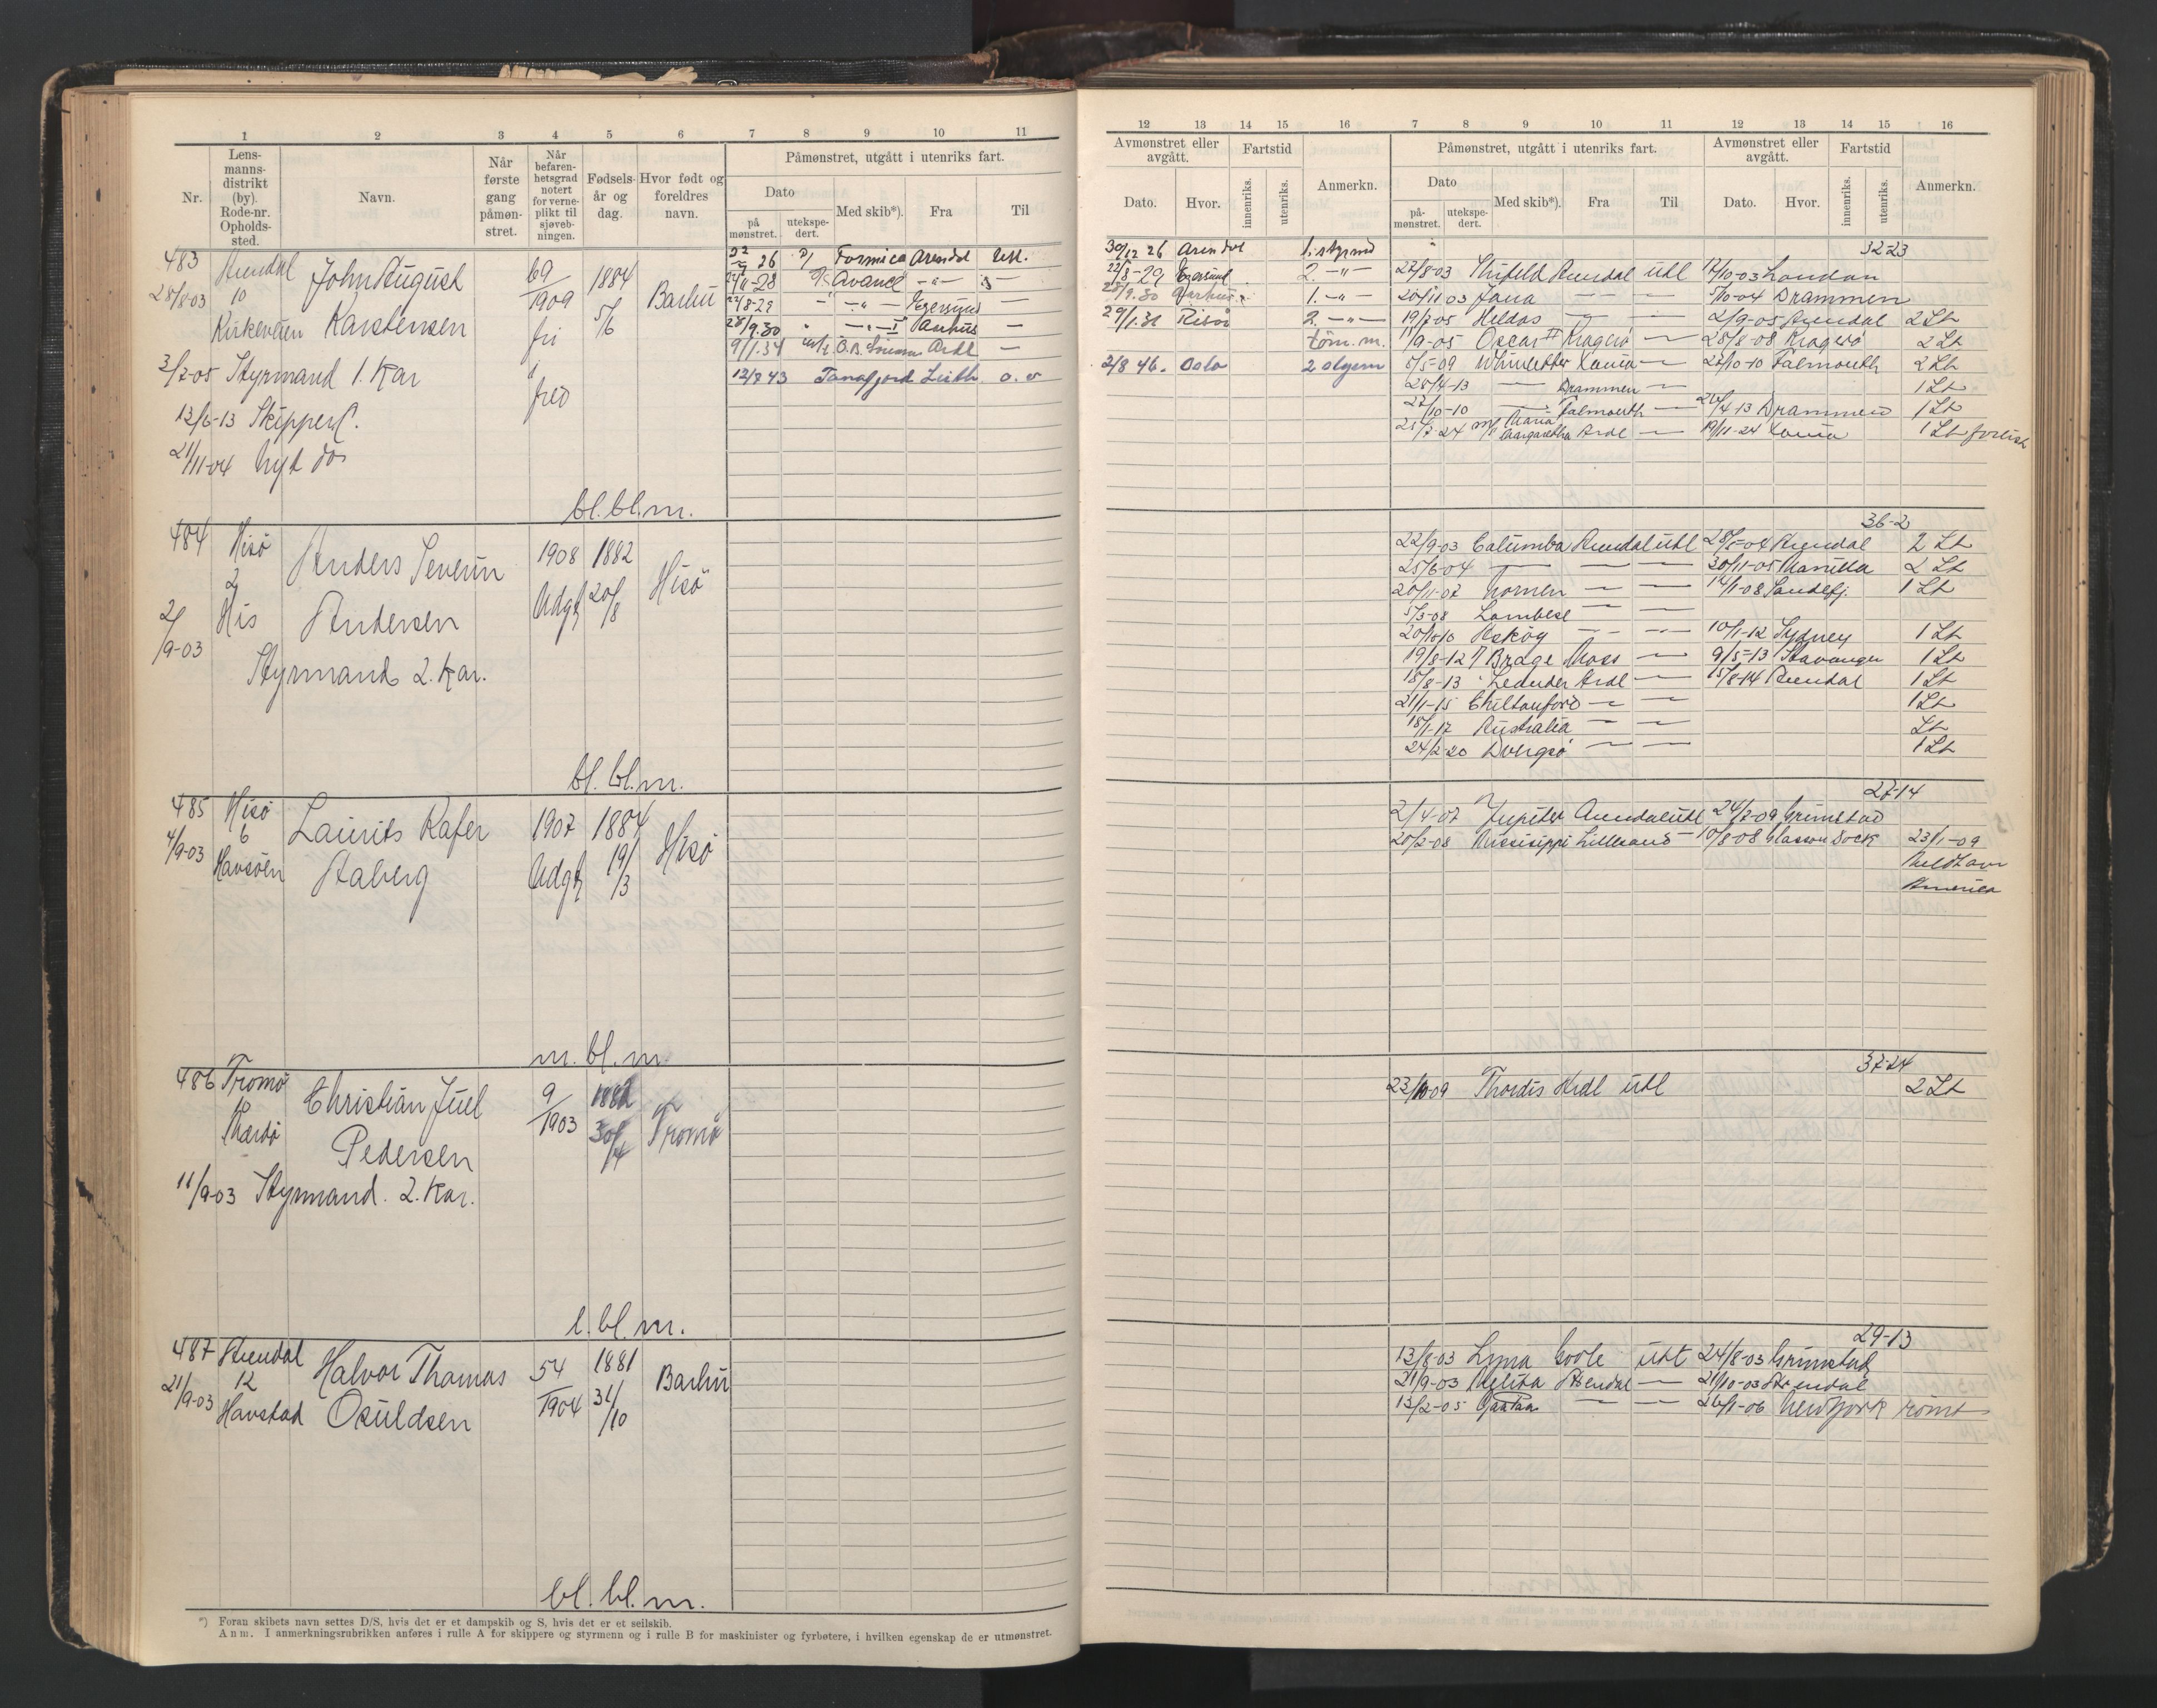 1 2 3 4 5 6 7 8 9 10 11
Nr.
Lens-
manns-
distrikt
(by).
Rode-nr.
Opholds-
sted.
Navn.
Når
første
gang
påmøn-
stret.
Når
befaren-
hetsgrad
notert
for verne-
plikt til
sjøveb-
ningen.
Fødsels-
år og
dag.
Hvor født og
foreldres
navn.
Påmønstret, utgått i utenriks fart.
Dato
på
mønstret.
utekspe-
dert.
Med skib*).
Fra
Til
483 Arendal John August 69 1884 Barbu
28/8-03 10 Karstensen 1909 5/6
Kirkeveien fri
3/7-05 Styrmand 1. Kar
12/6-13 Skipperc.
21/11-04 Nyt do
bl. bl. m.
26 Formica Arendal
28 Avance
22/8-29 Egersund
30 Aarhus
9/1.34 Ardl
12/8 43 Tanafjord Leith o. v
484 Hisø Anders Severin 1908 1882 Hisö
2 Andersen Udgt 20/8
His
2/9-03
Styrmand 2. Kar.
bl. bl. m.
485 Hisö Laurits Rafer 1907 1884 Hisö
4/9-03 6 Aaberg Udgt 19/3
Havsöen
m. bl. m.
486 Tromö Christian Juel 9 1882 Tromö
Pedersen 1903 30/4
11/9-03 Styrmand. 2. Kar.
l. bl. m.
487 Arendal Halvor Thomas 54 1881 Barbu
21/9-03 12 Osuldsen 1904 31/10
Havstad
bl. bl. m.
*) Foran skibets navn settes D/S, hvis det er et dampskib og S, hvis det er et seilskib.
Anm. I anmerkningsrubrikken anføres i rulle A for skippere og styrmenn og i rulle B for maskinister og fyrbøtere, i hvilken egenskap de er utmønstret.
12 13 14 15 16 7 8 9 10 11 12 13 14 15 16
Avmønstret eller
avgått.
Fartstid
Dato.
Hvor.
innenriks.
utenriks.
Anmerkn.
Påmønstret, utgått i utenriks fart.
Dato
på-
mønstret.
utekspe-
dert.
Med skib*).
Fra
Til
Avmønstret eller
avgått.
Fartstid
Dato.
Hvor.
innenriks.
utenriks.
Anmerkn.
30/12 26 Arendal 1. styrmd 32-23
22/8-29 Egersund 2. -"- 27/8-03 Arendal utl 17/10-03 London
Aarhus 1. -"- 20/11 03 Jana 5/10-04 Drammen
29/1.31 Risör 2. -"- 19/7-05 2/9-05 Arendal 2 St
töm. m. 11/9-05 Oscar II Kragerö 28/8-08 Kragerö 2 St
2/8 46. Oslo 2 styrm 5/5-09 27/10-10 Falmouth 2 St
28/4-13 Drammen 1 St
27/10-10 Falmouth 26/4 13 Drammen 1 St
25/7-24 Maria Margaretha Ardl 19/11-24 1 St
36-2
22/9-03 Columba Arendal utl 28/5-04 Arendal 2 St
25/6-04 30/11-05 Manilla 2 St
20/11-07 Nornen 14/1-08 Sandefj. 1 St
5/3-08 Lambese
20/10-10 Askög 10/1-12 Sydney 1 St
19/8-12 Brage Moss 9/5-13 Stavanger 1 St
18/8-13 Ardl 15/8-14 Arendal 1 St
21/1-15 Chiltonford 1 St
18/1-17 Australia St
24/2-20 Dvergsö 1 St
27-14
2/4-07 Jupiter Arendal utl 24/7-09 Grimstad
20/2-08 Missisippi Lillesand 10/8-08 Glasson Dock 23/1-09
America
37-24
23/10-09 Thordis Ardl utl 2 St
29-13
13/8-03 Lyna Goole utl 24/8-03 Grimstad
21/9-03 Melita Arendal 21/10-03 Arendal
13/2-05 26/1-06 New York römt